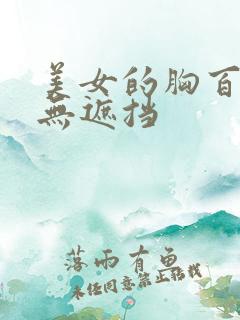 美女的胸百
無遮挡
落雨有鱼
未经同意禁止转载